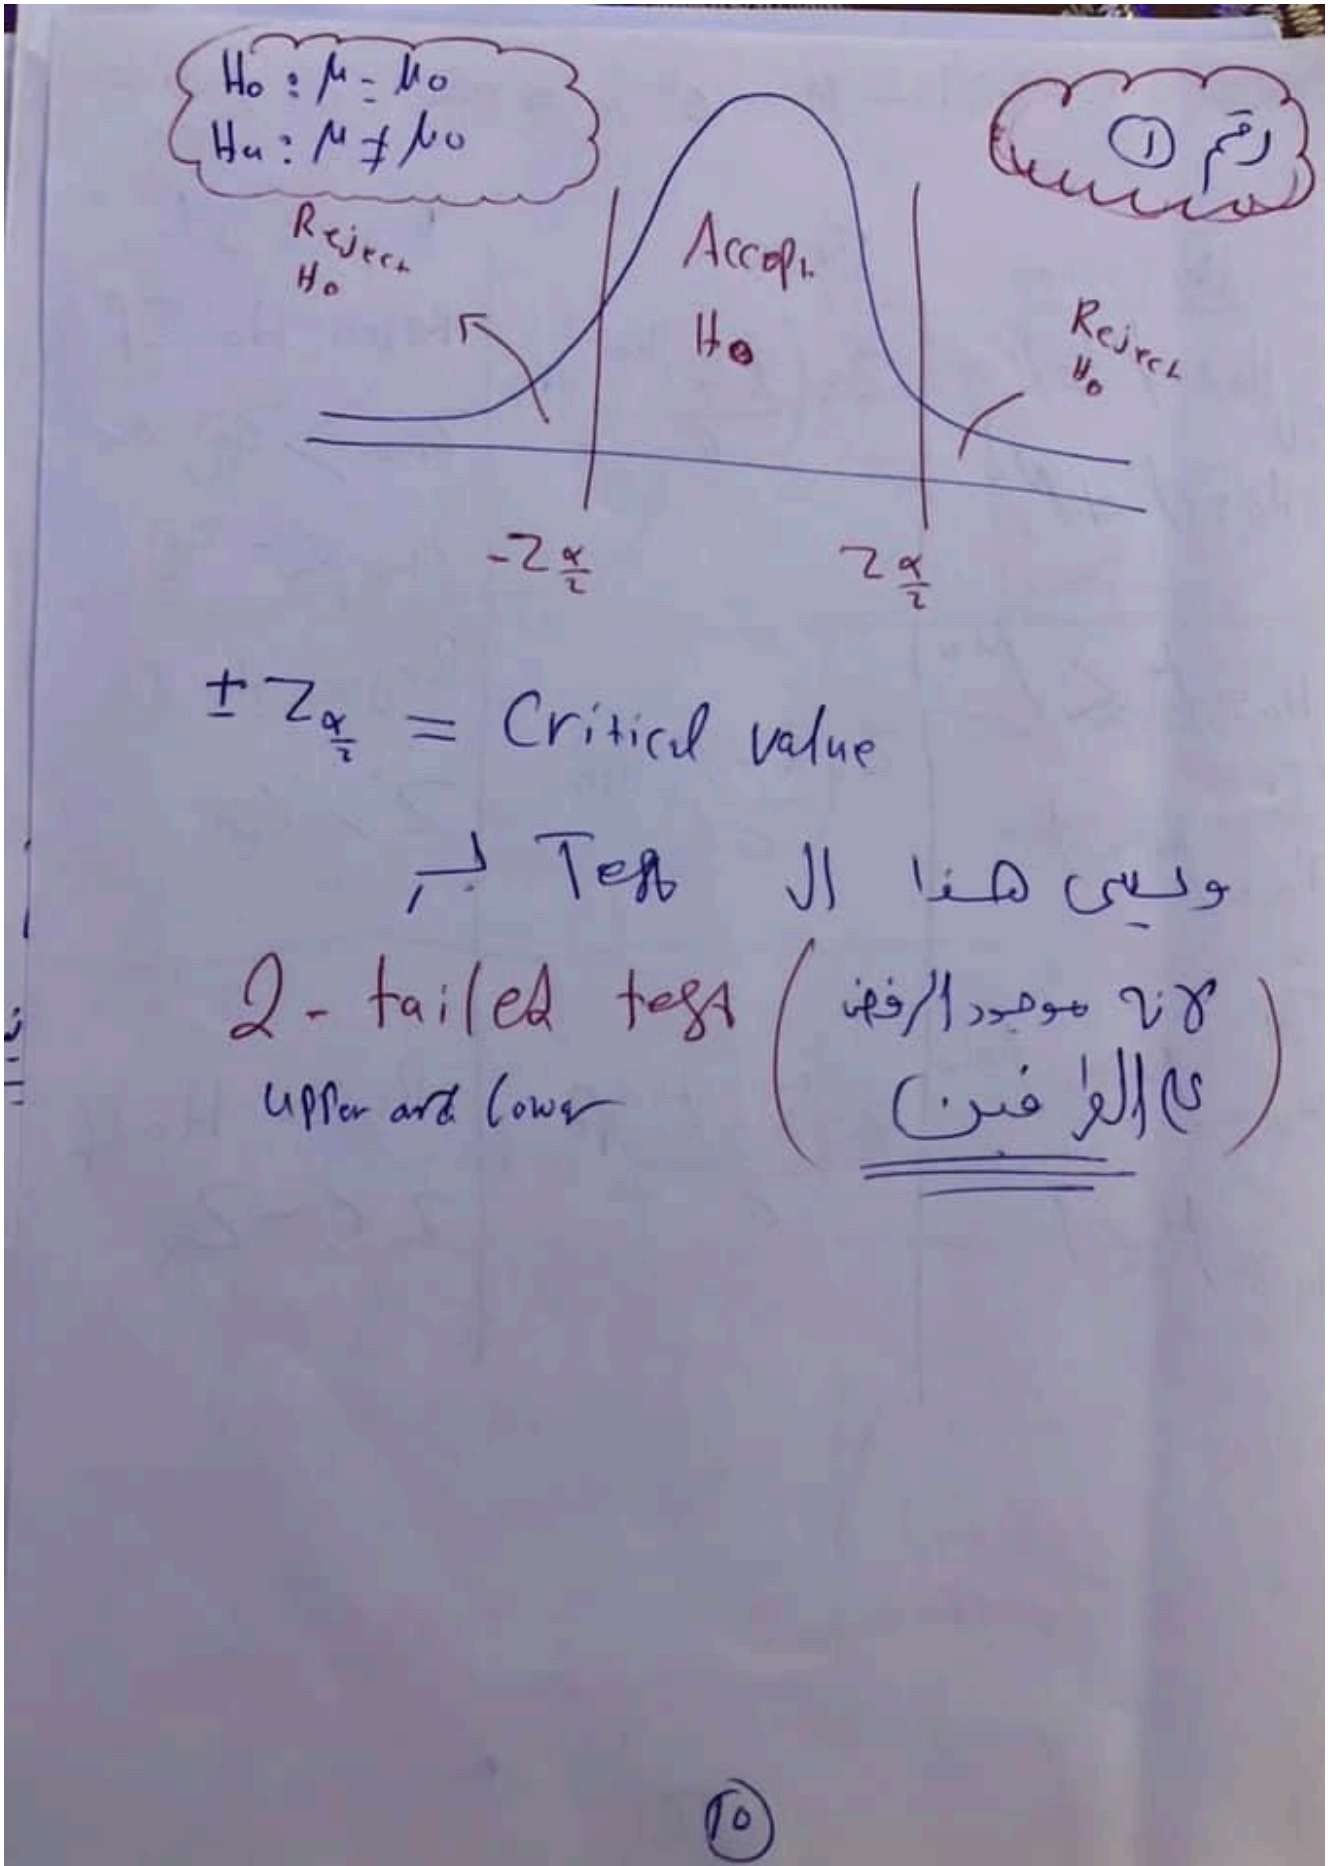 H₀ : μ = μ₀
Ha : μ ≠ μ₀
رقم ①
Reject
H₀
Accept
H₀
Reject
H₀
-Z α/2
Z α/2
± Z α/2 = Critical value
ويسمى هذا ال Test بـ
2- tailed test (لانه موجود الرفض
upper and lower على الطرفين)